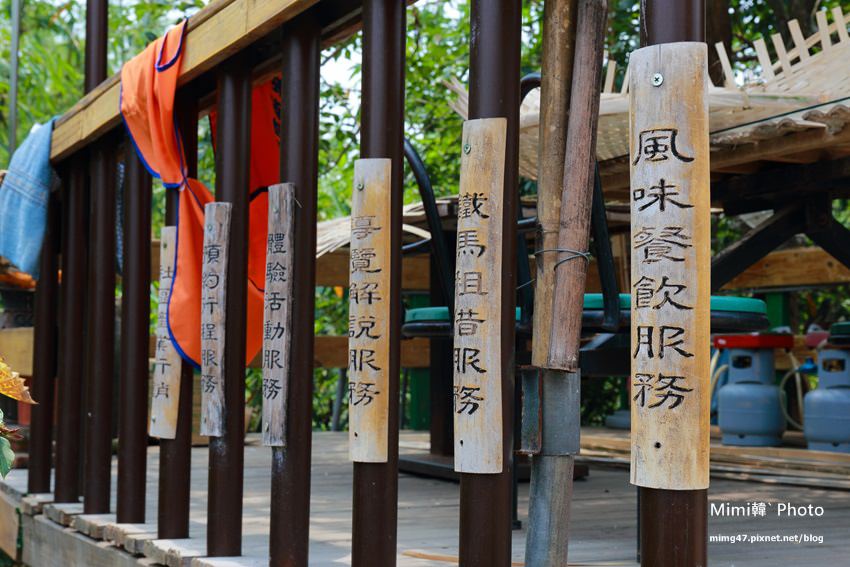 風味餐飲服務
鐵馬租借服務
導覽解說服務
體驗活動服務
預約行程服務
Mimi韓` Photo
mimg47.pixnet.net/blog